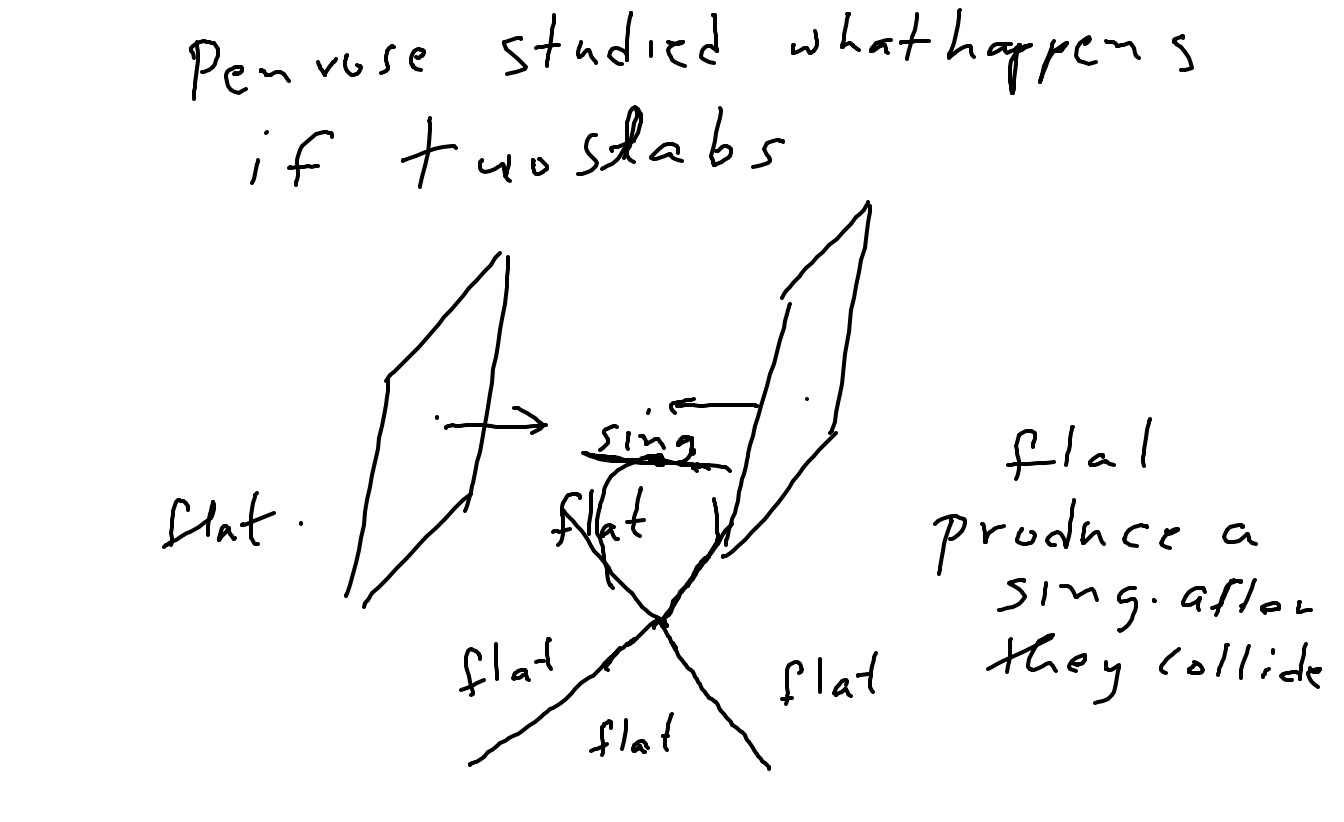 Penrose studied what happens
if two slabs
sing
flat.
flat
flal
produce a
sing. after
they collide
flat
flat
flat